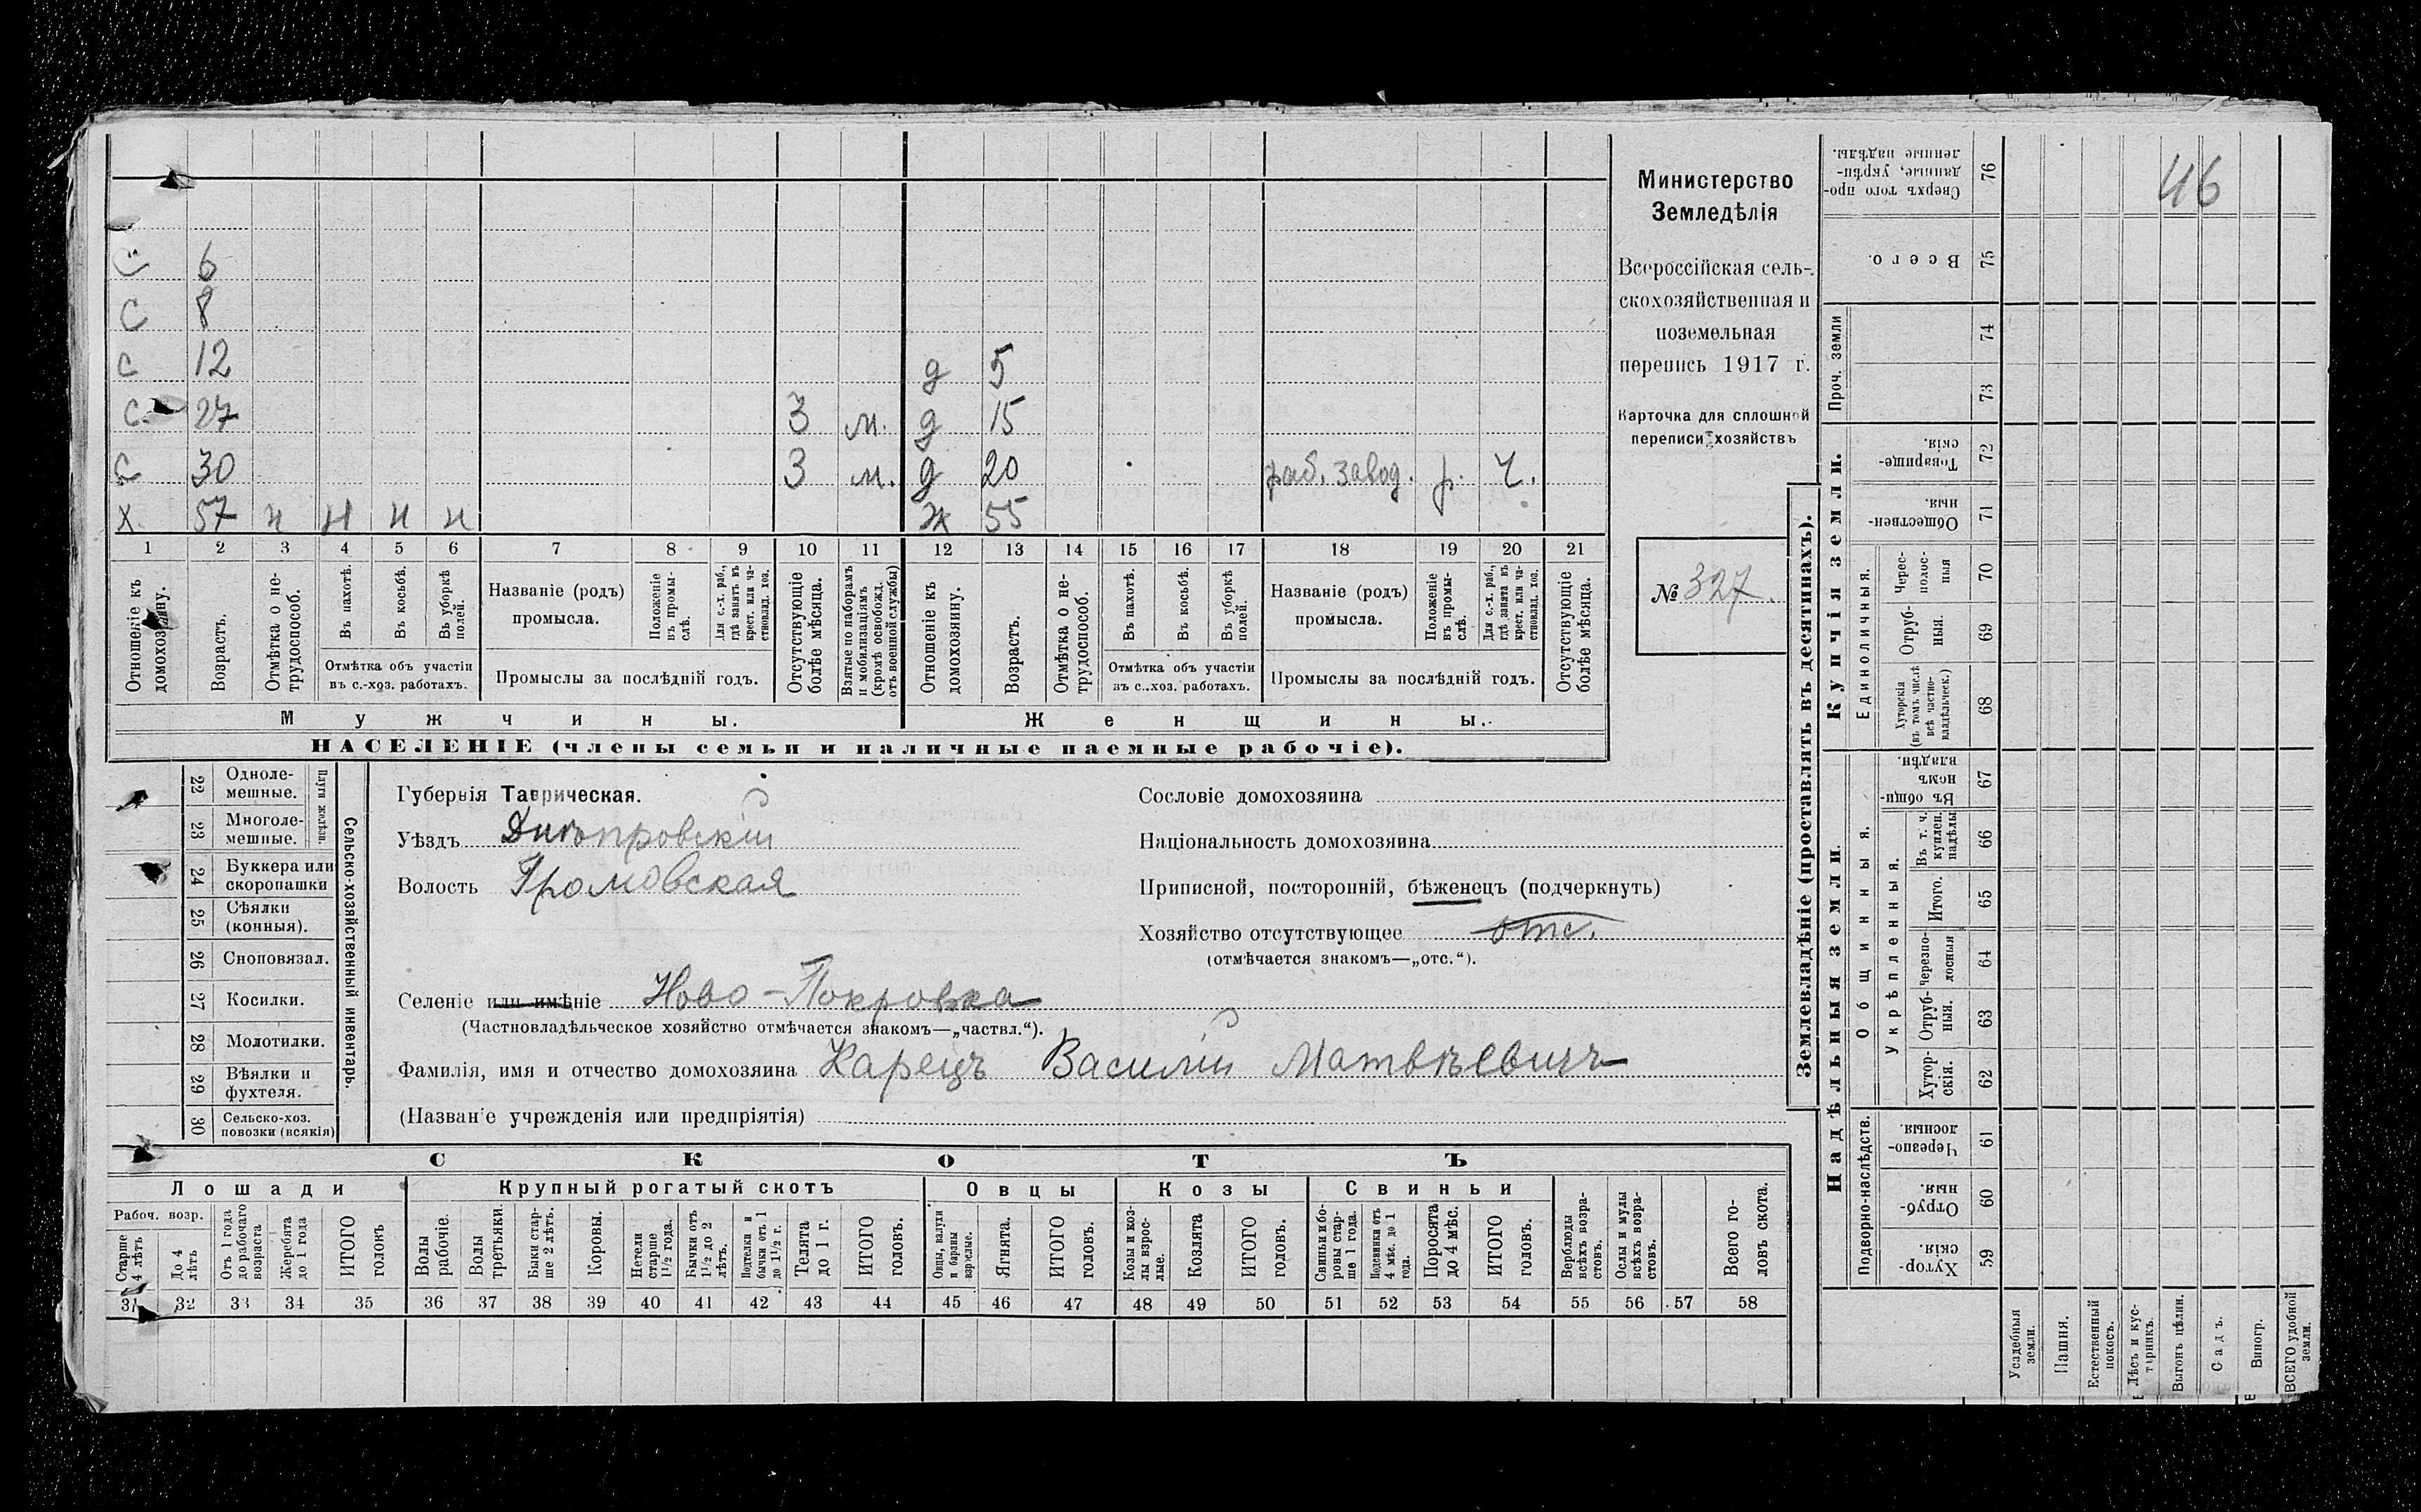 46
С 6
С 8
С 12 д 5
С. 27 3 м. д 15
С 30 3 м. д 20 раб. завод. р. Ч.
Х 57 н н н н Ж 55
1 2 3 4 5 6 7 8 9 10 11 12 13 14 15 16 17 18 19 20 21
Отношеніе къ домохозяину.
Возрастъ.
Отмѣтка о нетрудоспособ.
Въ пахотѣ.
Въ косьбѣ.
Въ уборкѣ полей.
Отмѣтка объ участіи въ с.-хоз. работахъ.
Названіе (родъ) промысла.
Положеніе въ промыслѣ.
Для с.-х. раб., гдѣ занятъ въ крест. или частновлад. хоз.
Промыслы за послѣдній годъ.
Отсутствующіе болѣе мѣсяца.
Взятые по наборамъ и мобилизаціямъ (кромѣ освобожд. отъ военной службы)
Отношеніе къ домохозяину.
Возрастъ.
Отмѣтка о нетрудоспособ.
Въ пахотѣ.
Въ косьбѣ.
Въ уборкѣ полей.
Отмѣтка объ участіи въ с..хоз. работахъ.
Названіе (родъ) промысла.
Положеніе въ промыслѣ.
Для с.-х. раб., гдѣ занята въ крест. или частновлад. хоз.
Промыслы за послѣдній годъ.
Отсутствующіе болѣе мѣсяца.
Мужчины. Женщины.
НАСЕЛЕНІЕ (члены семьи и наличные наемные рабочіе).
Министерство
Земледѣлія
Всероссійская сель-
скохозяйственная и
поземельная
перепись 1917 г.
Карточка для сплошной
переписи хозяйствъ
№ 327.
22 Одноле-
мешные.
23 Многоле-
мешные.
Плуги желѣзн.
24 Буккера или
скоропашки
25 Сѣялки
(конныя).
26 Сноповязал.
27 Косилки.
28 Молотилки.
29 Вѣялки и
фухтеля.
30 Сельско-хоз.
повозки (всякія)
Сельско-хозяйственный инвентарь.
Губернія Таврическая.
Уѣздъ Днѣпровскій
Волость Громовская
Селеніе или имѣніе Ново-Покровка
(Частновладѣльческое хозяйство отмѣчается знакомъ—„частвл.“).
Фамилія, имя и отчество домохозяина Карецъ Василій Матвѣевичъ
(Названіе учрежденія или предпріятія)
Сословіе домохозяина
Національность домохозяина
Приписной, посторонній, бѣженецъ (подчеркнуть)
Хозяйство отсутствующее отс.
(отмѣчается знакомъ—„отс.“).
СКОТЪ
Лошади Крупный рогатый скотъ Овцы Козы Свиньи
Рабоч. возр.
Старше 4 лѣтъ
До 4 лѣтъ
Отъ 1 года до рабочаго возраста
Жеребята до 1 года
ИТОГО головъ
Волы рабочіе.
Волы третьяки.
Быки старше 2 лѣтъ.
Коровы.
Нетели старше 1½ года.
Бычки отъ 1½ до 2 лѣтъ.
Подтелки и бычки отъ 1 до 1½ г.
Телята до 1 г.
ИТОГО головъ.
Овцы, валухи и бараны взрослые.
Ягнята.
ИТОГО головъ.
Козы и козлы взрослые.
Козлята
ИТОГО головъ.
Свиньи и боровы старше 1 года.
Подсвинки отъ 4 мѣс. до 1 года.
Поросята до 4 мѣс.
ИТОГО головъ.
Верблюды всѣхъ возрастовъ.
Ослы и мулы всѣхъ возрастовъ.
Всего головъ скота.
31 32 33 34 35 36 37 38 39 40 41 42 43 44 45 46 47 48 49 50 51 52 53 54 55 56 57 58
Землевладѣніе (проставлять въ десятинахъ).
Сверхъ того проданные, укрѣпленные надѣлы. 76
Всего. 75
Проч. земли
74
73
Купчія земли.
Товарищескія. 72
Общественныя. 71
Единоличныя.
Черес-
полос-
ныя 70
Отруб-
ныя. 69
Хуторскія (въ томъ числѣ всѣ частновладѣльческ.) 68
Надѣльныя земли.
Общинныя.
Въ общинномъ владѣн. 67
Укрѣпленныя.
Въ т. ч. куплен. надѣлы 66
Итого. 65
Черезпо-
лосныя 64
Отруб-
ныя. 63
Хутор-
скія. 62
Подворно-наслѣдств.
Черезпо-
лосныя. 61
Отруб-
ныя. 60
Хутор-
скія. 59
Усадебныя земли.
Пашня.
Естественный покосъ.
Лѣсъ и кустарникъ.
Выгонъ цѣлин.
Садъ.
Виногр.
ВСЕГО удобной земли.